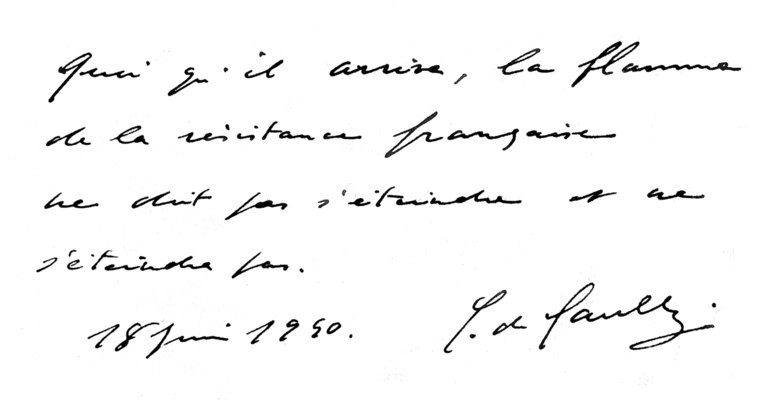 Quoi qu'il arrive, la flamme
de la résistance française
ne doit pas s'éteindre et ne
s'éteindra pas.
18 juin 1940.
C. de Gaulle.